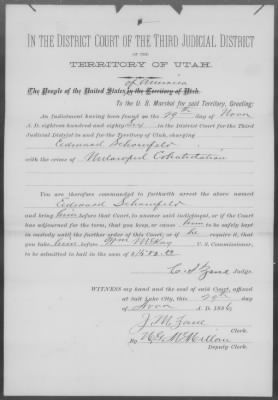 IN THE DISTRICT COURT OF THE THIRD JUDICIAL DISTRICT
OF THE
TERRITORY OF UTAH.
of America
The People of the United States in the Territory of Utah.
To the U. S. Marshal for said Territory, Greeting:
An Indictment having been found on the 29th day of Nov
A. D. eighteen hundred and eighty six in the District Court for the Third
Judicial District in and for the Territory of Utah, charging
Edward Schoenfeld
with the crime of Unlawful Cohabitation
You are therefore commanded to forthwith arrest the above named
Edward Schoenfeld
and bring him before that Court, to answer said indictment, or if the Court
has adjourned for the term, that you keep, or cause him to be safely kept
in custody until the further order of this Court; or if he require it, that
you take him before Wm McKay U. S. Commissioner,
to be admitted to bail in the sum of $1500.00
C. S. Zane Judge.
WITNESS my hand and the seal of said Court, affixed
at Salt Lake City, this 29th day
of Nov A. D. 1886,
J. M. Zane
Clerk.
By H. G. McMillan
Deputy Clerk.